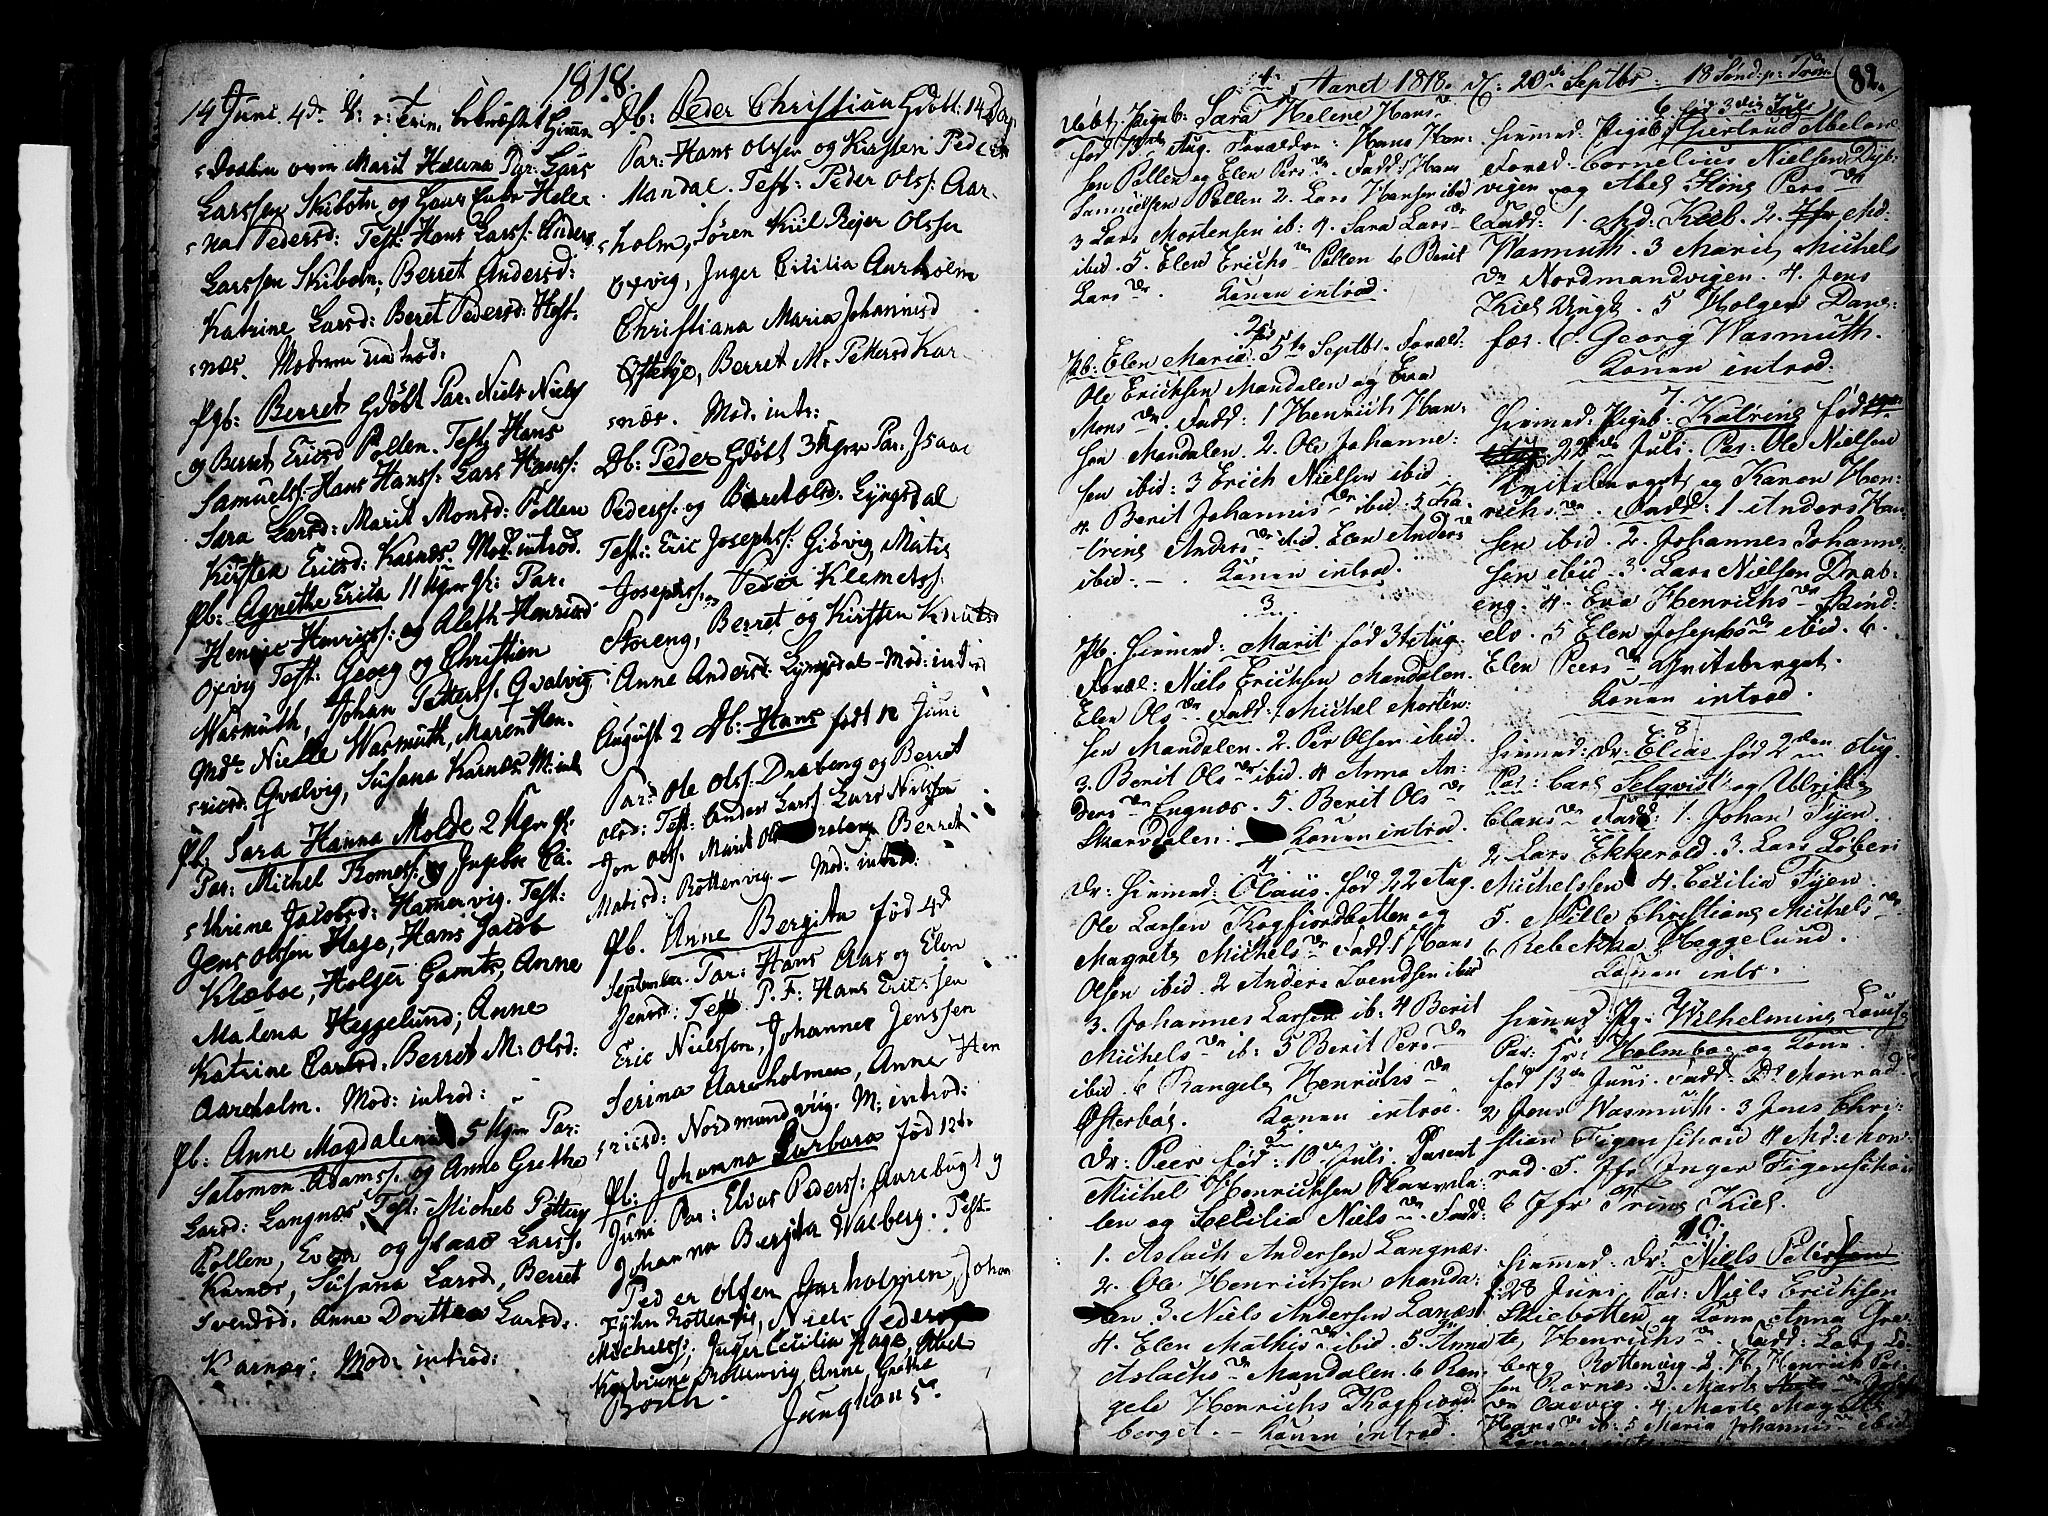 1818.
14 Juni 4de S: p: Trin. bekræftet Hiem
Daaben over Marit Helena Par: Lars
Larssen Skibotn og Hans Enke Hele
na Pedersd: Test: Hans Larss: Anders
Larssen Skibotn, Berret Andersd:
Katrine Larsd: Beret Pedersd: Hest
næs. Moderen introd:
Pgb: Berret Hdøbt Par: Niels Niels
og Berret Ericsd Pollen. Test: Hans
Samuelss: Hans Hanss: Lars Hanss:
Sara Larsd: Marit Monsd: Pollen
Kirsten Ericsd: Karnæs Mod: introd.
Pb: Agnethe Erica 11 Uger gl: Par.
Henric Henricss: og Aleth Henricsd
Oxvig Test: Georg og Christien
Wasmuth, Johan Petterss. Qvalvig
Mdm Nielle Wasmuth, Maren Hen
ricsd: Qvalvig, Susana Karnæs M: int
Pb. Sara Hanna Molde 2 Uger gl:
Par: Michel Tomess: og Ingeboe Ca
thrine Jacobsd: Hamervig. Test:
Jens Olssen Hage, Hans Jacob
Klæboe, Holger Gamts, Anne
Malena Heggelund; Anne
Katrine Carlsd. Berret M: Olsd:
Aareholm. Mod: introd:
Pb: Anne Magdalena 5 Uger Par:
Salomon Adamss. og Anne Grethe
Larsd: Langnæs Test: Michel Petters
Pollen, Even og Isaac Larss.
Karnæs, Susana Larsd, Berret
Svendsd. Anne Dorthea Larsd.
Karnæs: Mod: introd:
Db: Peder Christian Hdøbt: 14 Dag
Par: Hans Olssen og Kirsten Peders
Mandal. Test: Peder Olss: Aar
holm, Søren Kiil Rejer Olssen
Oxvig, Inger Cicilia Aarholm
Christiana Maria Johannesd
Ostebye, Berret M: Pettersd Kar
næs. Mod: intr:
Db: Peder Hdøbt 3 Uger Par. Isaac
Pederss: og Berret Olsd. Lyngsdal
Test: Eric Josephs: Giøvig Matis
Josephss: Peder Klemetss.
Storeng, Berret og Kirsten Knuts
Anne Andersd Lyngsdal – Mod: introd
August 2 Db: Hans født 12 Juni
Par: Ole Olss: Drabeng og Berret
Olsd: Test: Anders Larss Lars Nilssen
Jon Olss. Marit Ol Berret
Matisd: Rottenvig – Mod: introd:
Pb. Anne Bergitta fød 4d
September Par: Hans Aas og Elen
Jensd: Test P. F: Hans Ericssen
Eric Nielssen, Johannes Jenssen
Serina Aareholmen, Anne Hen
ricsd: Nordmandviig. M: introd:
Pb: Johanna Barbara fød 12d.
Juni Par: Elias Pederss: Aarebugt og
Johanna Bergita Walberg. Test.
Peder Olssen Aarholmen, Johan
Fyhn Rottenvig, Niels Peder
Michelss; Inger Cecilia Hage, Abel
Rottenvig Anne Grethe
Junghans.
Aaret 1818. d: 20de Septbr. 18 Sønd: p: Trin 82.
1.
Døbt Pigeb: Sara Helene Hans dr
fød 13de Aug. Forældre: Hans Han
sen Pollen og Elen Pers dr Fadd: 1 Hans
Samuelsen Pollen 2. Lars Hansen ibid
3 Lars Mortensen ib: 4. Sara Lars dr
ibid. 5. Elen Erichs dr Pollen 6 Berit
Lars dr. Konen introd.
2.
Pb: Elen Maria 5te Septbr. Foræl:
Ole Ericksen Mandalen og Eva
Mons dr Fadd: 1 Henrich Han
sen Mandalen. 2. Ole Johanne
sen ibid: 3 Erich Nielsen ibid
4. Berit Johannis dr ibid. 5 Ka
trine Anders dr ibid. Elen Anders dr
ibid. – Konen introd.
3.
Pb. hiemmed: Marit fød 31 Aug.
Foræl: Niels Ericksen Mandalen.
Elen Ols dr Fadd: 1 Michel Morten
sen Mandalen. 2. Per Olsen ibid.
3. Berit Ols dr ibid. 4 Anna An
ders dr Engnæs. 5. Berit Ols dr
Skarvdalen: Konen introd.
4
Dr: hiemmed: Olaus. fød 22 Aug.
Ole Larsen Kogfiordbotten og
Magrete Michels dr Fadd: 1 Hans
Olsen ibid. 2 Anders Svendsen ibid
3. Johannes Larsen ib: 4 Berit
Michels dr ib: 5 Berit Pers dr
ibid 6 Rangele Henrichs dr
Østerbøg. Konen introd.
5
Dr: Peer fød: 10de Juli. Parent
Michel Henricksen Skarvda
len og Cecilia Niels dr. Fadd:
1. Aslach Andersen Langnæs.
2. Ole Henrickssen Manda
len 3. Niels Andersen Lanæs
4. Elen Mathis dr ibid. 5. Anna
Aslachs dr Mandalen. 6 Ran
gele Henrichs Kogfiord
berget. – Konen introd.
6 fød 3die Juli
hiemmed. Pigeb: Giertrud Abelone
Foræl. Cornelius Nielsen Dyb
vigen og Abel Stine Pers dr
Fadd: 1. Md: Kiel. 2. Jfr Md.
Wasmuth. 3 Marie Michels
dr Nordmandvigen. 4. Jens
Kiel Ungk. 5 Holger Dane
fær. 6. Georg Wasmuth.
Konen introd.
7.
hiemmed: Pigeb: Katrine fød
22de Juli. Par: Ole Nielsen
Qvitaberget og Karen Hen
richs dr. Fadd: 1. Anders Han
sen ibid 2. Johannes Johanne
sen ibid. 3. Lars Nielsen Drab
eng. 4. Eva Henrichs dr Skind
elv. 5 Elen Josephs dr ibid. 6.
Elen Peers dr Qvitaberget.
Konen introd.
8
hiemmed: Dr: Elias fød 2den Aug.
Par: Carl Selqvist og Ulrikke
Claus dr Fadd: 1. Johan Fyen.
2 Lars Ekkerold. 3. Lars Løberi
Michelssen 4. Cecilia Fyen.
5. Mille Christiana Michels dr
6 Rebekka Heggelund.
Konen intr.
9
hiemmed Pg: Wilhelmine Lovise
Par: Hr: Holmboe og Kone.
fød 13de Juni. Fadd: Monrad
2 Jens Wasmuth. 3 Jens Chri
stian Figenschou 4 Md: Mon
rad. 5. Jfr Inger Figenschou
6 Jfr Trine Kiel.
10.
hiemmed: Dr: Niels Petersen
f. 28 Juni, Par: Niels Ericksen
Skiebotten og Kone Anna Gre
te Henrichs dr Fadd: Lars Lo
berg Rottenvig. 2. H. Henrich Par
sen Rørnæs. 3. Marte
dr Oxevig. 4. Marte Magrete
Hans dr ib: 5 Maria Johannis dr ibid